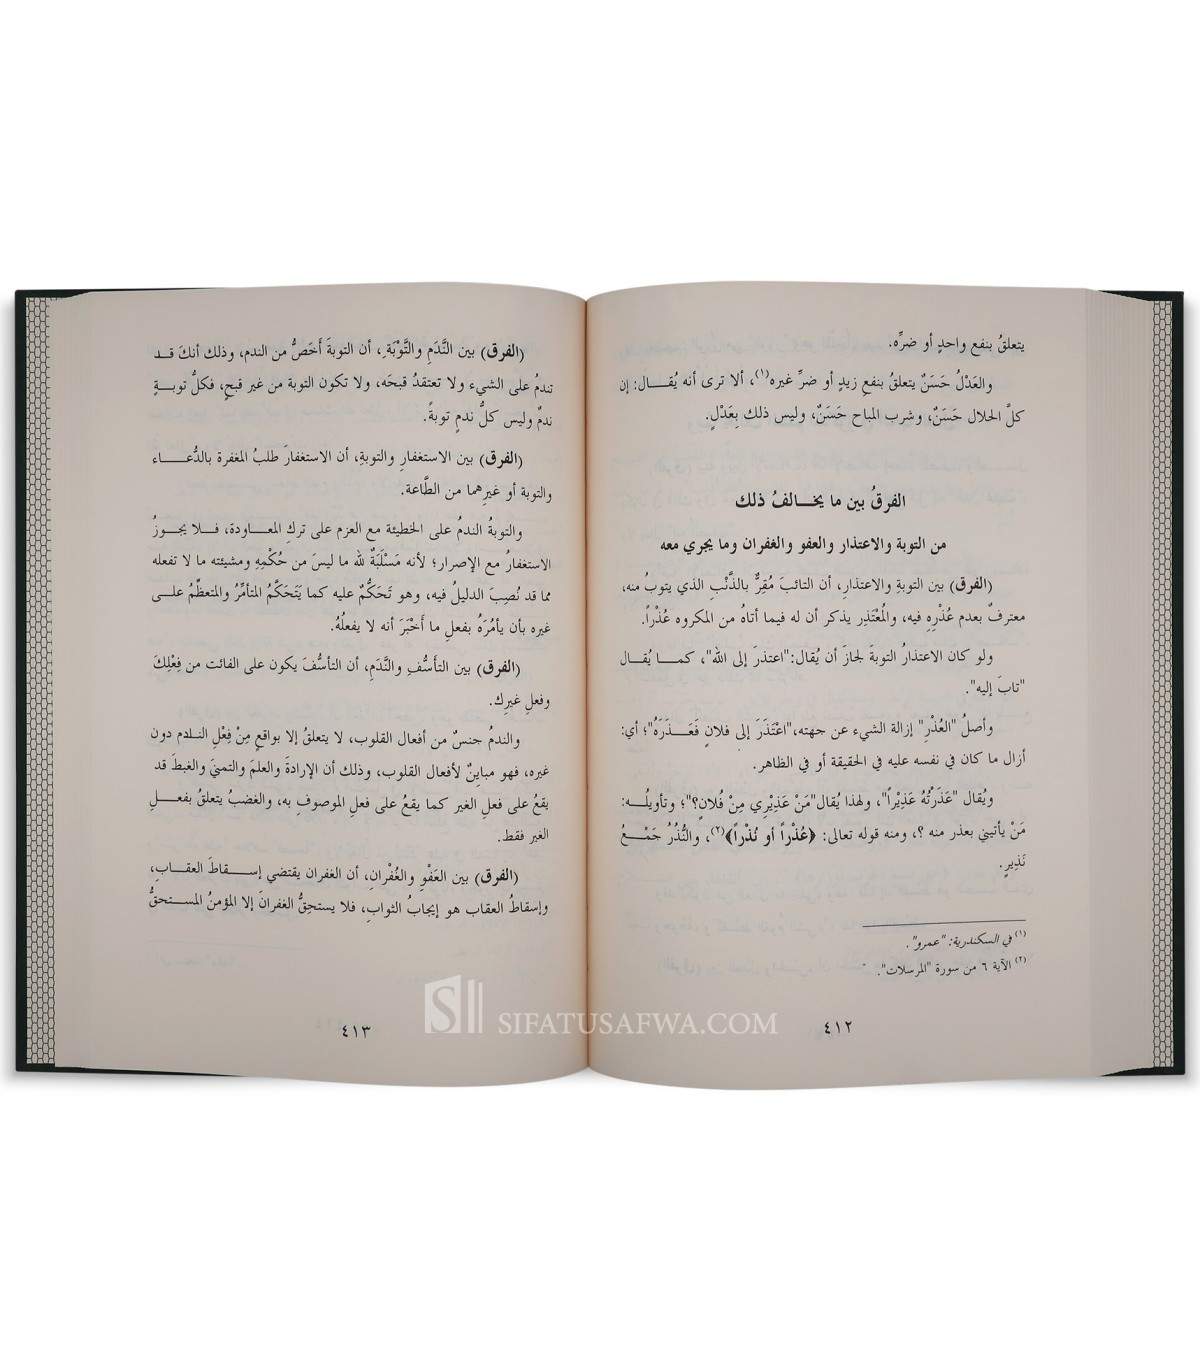 يتعلقُ بنفع واحدٍ أو ضرِّه.
والعَدْلُ حَسَنٌ يتعلقُ بنفعِ زيدٍ أو ضرِّ غيره(١)، ألا ترى أنه يُقال: إن
كلَّ الحلال حَسَنٌ، وشرب المباح حَسَنٌ، وليس ذلك بِعَدْلٍ.
الفرقُ بين ما يخالفُ ذلك
من التوبة والاعتذار والعفو والغفران وما يجري معه
(الفرق) بين التوبةِ والاعتذارِ، أن التائبَ مُقِرٌّ بالذَّنْبِ الذي يتوبُ منه،
معترفٌ بعدم عُذْرِهِ فيه، والمُعْتَذِر يذكر أن له فيما أتاهُ من المكروه عُذْراً.
ولو كان الاعتذارُ التوبةَ لجازَ أن يُقال: "اعتذرَ إلى الله"، كما يُقال
"تابَ إليه".
وأصلُ "العُذْرِ" إزالة الشيء عن جهته، "اعْتَذَرَ إلى فلانٍ فَعَذَرَهُ"؛ أي:
أزال ما كان في نفسه عليه في الحقيقة أو في الظاهر.
ويُقال "عَذَرْتُهُ عَذِيْراً"، ولهذا يُقال "مَنْ عَذِيْرِي مِنْ فُلانٍ؟"؛ وتأويلُه:
مَنْ يأتيني بعذر منه ؟، ومنه قوله تعالى: ﴿عُذْراً أو نُذْراً﴾(٢)، والنُّذُرُ جَمْعُ
نَذِيرٍ.
(١) في السكندرية: "عمرو".
(٢) الآية ٦ من سورة "المرسلات".
٤١٢
(الفرق) بين النَّدَمِ والتَّوْبَةِ، أن التوبةَ أَخَصُّ من الندم، وذلك أنكَ قد
تندمُ على الشيء ولا تعتقدُ قبحَه، ولا تكون التوبة من غير قبحٍ، فكلُّ توبةٍ
ندمٌ وليس كلُّ ندمٍ توبةً.
(الفرق) بين الاستغفارِ والتوبةِ، أن الاستغفارَ طلبُ المغفرة بالدُّعاء
والتوبة أو غيرِهما من الطَّاعة.
والتوبةُ الندمُ على الخطيئة مع العزم على تركِ المعاودة، فلا يجوزُ
الاستغفارُ مع الإصرار؛ لأنه مَسْلَبَةٌ لله ما ليسَ من حُكْمِهِ ومشيئته ما لا تفعله
مما قد نُصِبَ الدليلُ فيه، وهو تَحَكُّمٌ عليه كما يَتَحَكَّمُ المتأمِّرُ والمتعظِّمُ على
غيره بأن يأمُرَهُ بفعلِ ما أَخْبَرَ أنه لا يفعلُهُ.
(الفرق) بين التأَسُّفِ والنَّدَمِ، أن التأسُّفَ يكون على الفائت من فِعْلِكَ
وفعلِ غيرِك.
والندمُ جنسٌ من أفعال القلوب، لا يتعلقُ إلا بواقعٍ مِنْ فِعْلِ النادم دون
غيره، فهو مباينٌ لأفعال القلوب، وذلك أن الإرادةَ والعلمَ والتمنيَ والغبطَ قد
يقعُ على فعلِ الغير كما يقعُ على فعلِ الموصوفِ به، والغضبُ يتعلقُ بفعلِ
الغير فقط.
(الفرق) بين العَفْوِ والغُفْرانِ، أن الغفران يقتضي إسقاطَ العقابِ،
وإسقاطُ العقاب هو إيجابُ الثوابِ، فلا يستحِقُّ الغفرانَ إلا المؤمنُ المستحقُّ
٤١٣
SIFATUSAFWA.COM